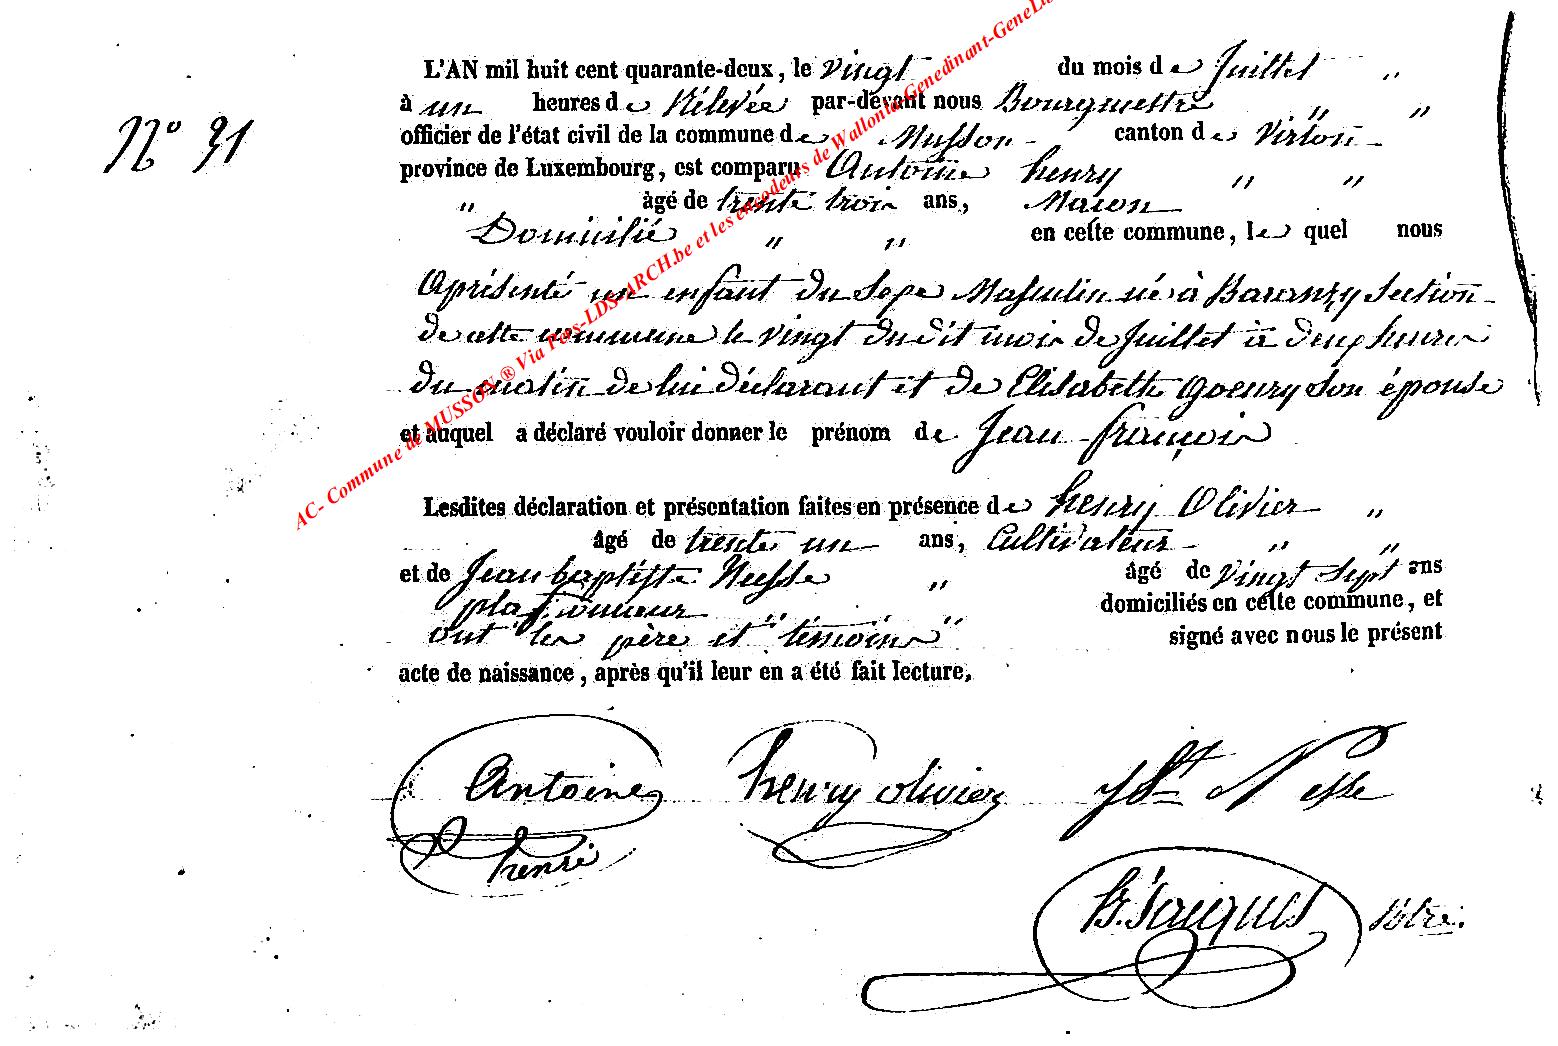 L'AN mil huit cent quarante-deux, le vingt du mois de Juillet "
à un heures de Rélevée par-devant nous Bourgmestre " "
N° 31
officier de l'état civil de la commune de Musson canton de Virton
province de Luxembourg, est comparu Antoine henry " "
" àgé de trente trois ans, Macon
Domicilié " " en cette commune, le quel nous
a présenté un enfant du Sexe Masculin né à Baranzy Section
de cette commune le vingt du dit mois de Juillet à deux heures
du matin de lui déclarant et de Elisabette Goenry son épouse
et auquel a déclaré vouloir donner le prénom de Jean françois
Lesdites déclaration et présentation faites en présence de henry Olivier "
âgé de trente un ans, Cultivateur " "
et de Jean baptiste Nesse " âgé de vingt sept ans
plafonneur " " domiciliés en cette commune, et
ont les père et témoins signé avec nous le présent
acte de naissance, après qu'il leur en a été fait lecture.
Antoine henry olivier Jbte Nesse
henri
Jacques
AC- Commune de MUSSON ® Via Pers-LDS-ARCH.be et les encodeurs de Wallonia-Genedinant-GeneLux